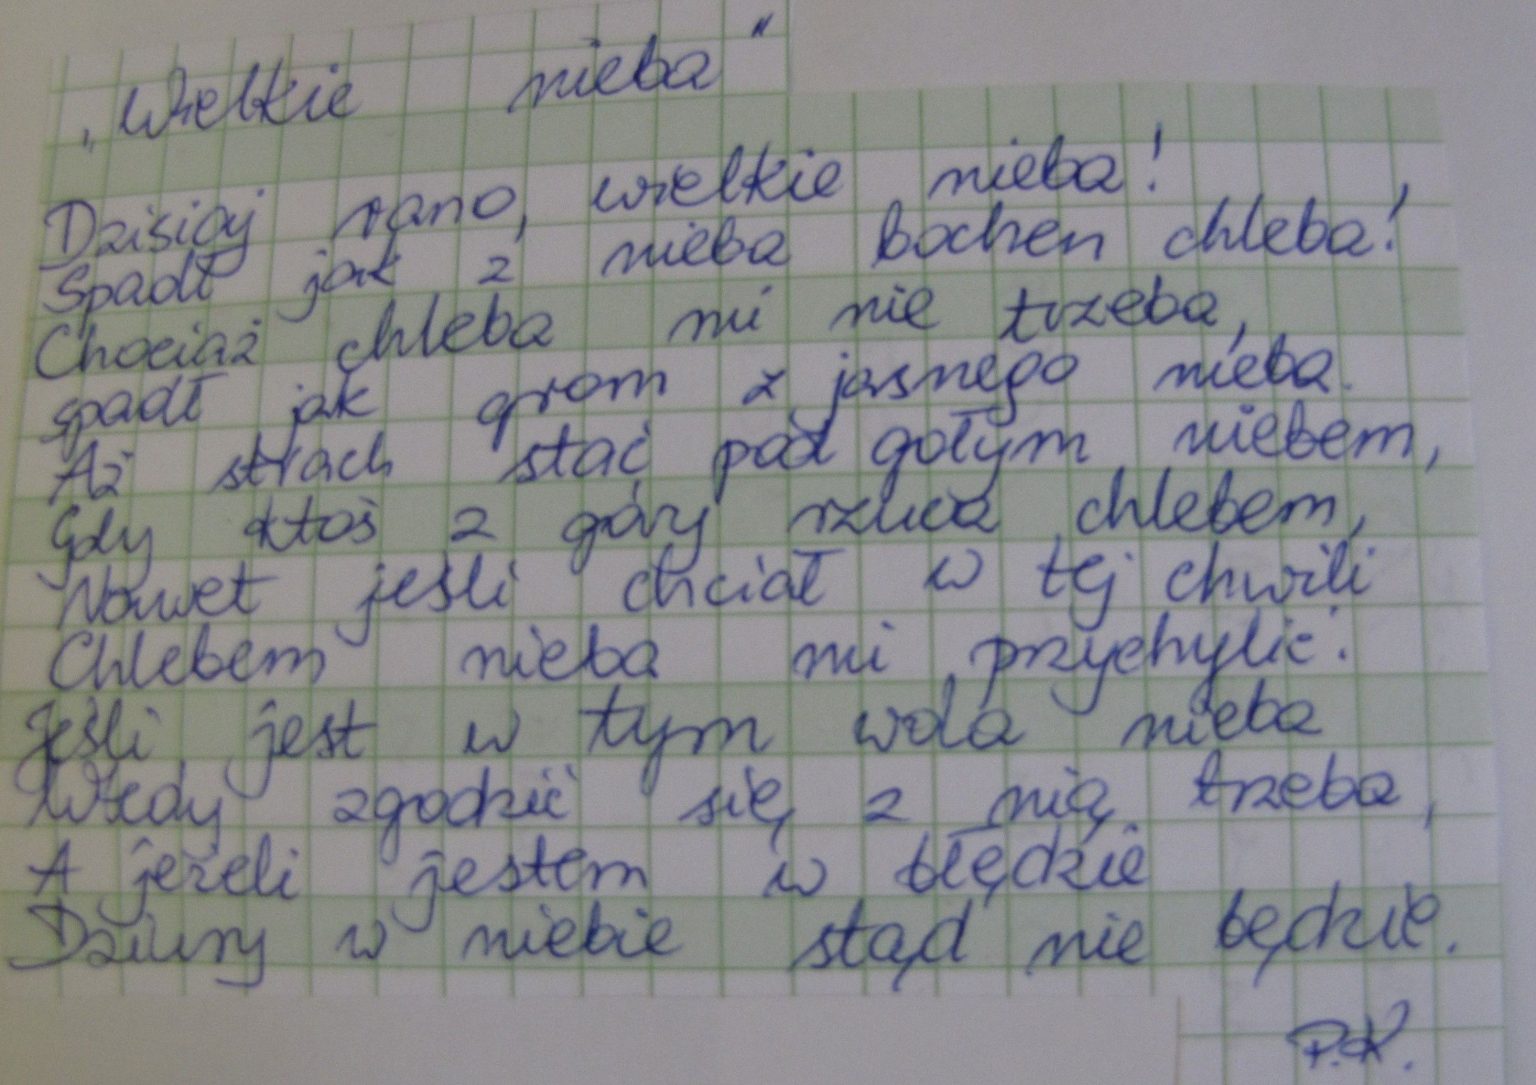 „Wielkie nieba"
Dzisiaj rano, wielkie nieba!
Spadł jak z nieba bochen chleba!
Chociaż chleba mi nie trzeba,
spadł jak grom z jasnego nieba.
Aż strach stać pod gołym niebem,
Gdy ktoś z góry rzuca chlebem,
Nawet jeśli chciał w tej chwili
Chlebem nieba mi przychylić.
Jeśli jest w tym wola nieba
Wtedy zgodzić się z nią trzeba,
A jeżeli jestem w błędzie
Dziury w niebie stąd nie będzie.
P.K.